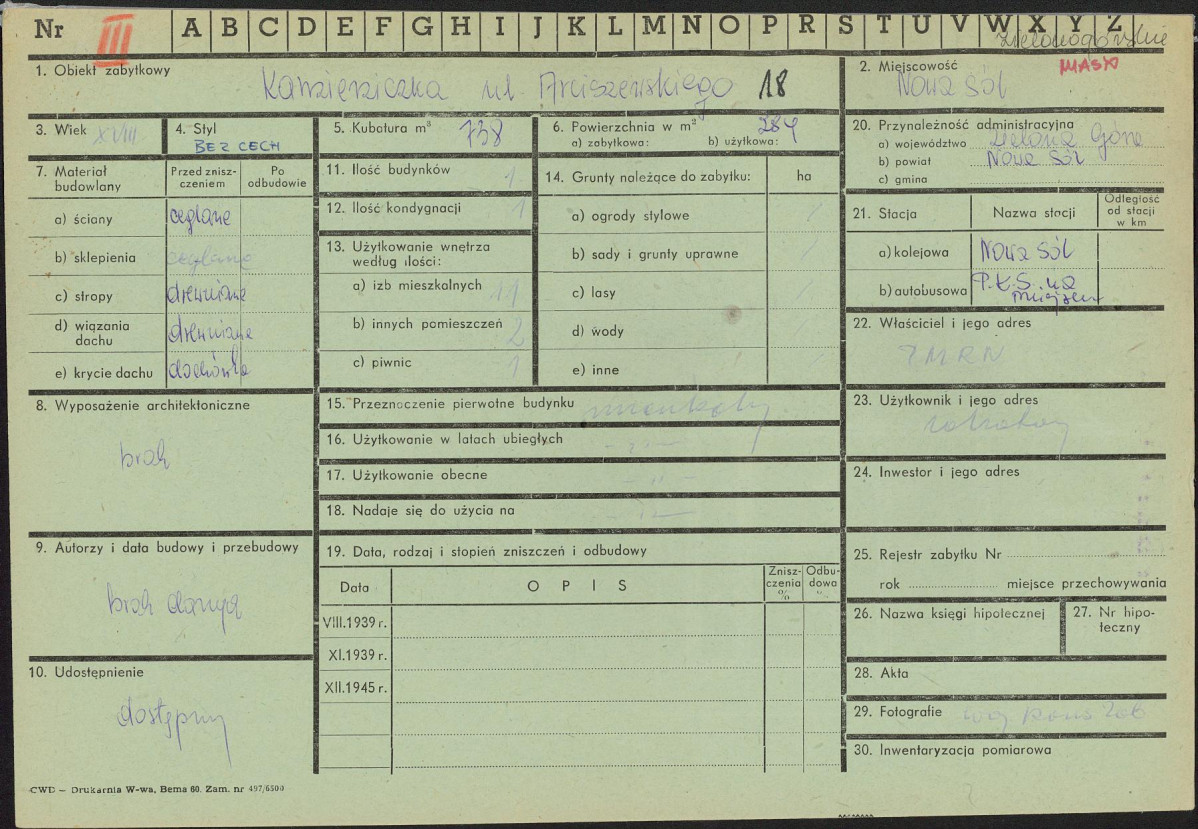 Nr III A B C D E F G H I J K L M N O P R S T U V W X Y Z
zielonogórskie
1. Obiekt zabytkowy
Kamieniczka ul. Arciszewskiego 18
2. Miejscowość
MIASTO
Nowa Sól
3. Wiek XVIII
4. Styl
BEZ CECH
5. Kubatura m³ 738
6. Powierzchnia w m² 284
a) zabytkowa: b) użytkowa:
20. Przynależność administracyjna
a) województwo Zielona Góra
b) powiat Nowa Sól
c) gmina
7. Materiał budowlany
Przed znisz-
czeniem
Po
odbudowie
a) ściany ceglane
b) sklepienia ceglane
c) stropy drewniane
d) wiązania
dachu drewniane
e) krycie dachu dachówka
11. Ilość budynków 1
12. Ilość kondygnacji 1
13. Użytkowanie wnętrza
według ilości:
a) izb mieszkalnych 11
b) innych pomieszczeń 2
c) piwnic 1
14. Grunty należące do zabytku: ha
a) ogrody stylowe /
b) sady i grunty uprawne /
c) lasy /
d) wody /
e) inne /
21. Stacja
Nazwa stacji
Odległość
od stacji
w km
a) kolejowa Nowa Sól
b) autobusowa P.K.S. na
miejscu
22. Właściciel i jego adres
ZMRN
8. Wyposażenie architektoniczne
brak
15. Przeznoczenie pierwotne budynku
16. Użytkowanie w latach ubiegłych - " -
17. Użytkowanie obecne - " -
18. Nadaje się do użycia na - " -
23. Użytkownik i jego adres
24. Inwestor i jego adres
9. Autorzy i data budowy i przebudowy
brak danych
19. Data, rodzaj i stopień zniszczeń i odbudowy
Data
OPIS
Znisz-
czenia
%
Odbu-
dowa
%
VIII.1939 r.
XI.1939 r.
XII.1945 r.
25. Rejestr zabytku Nr
rok miejsce przechowywania
26. Nazwa księgi hipotecznej
27. Nr hipo-
teczny
10. Udostępnienie
dostępny
28. Akta
29. Fotografie
30. Inwentaryzacja pomiarowa
CWD — Drukarnia W-wa, Bema 60. Zam. nr 497/6500